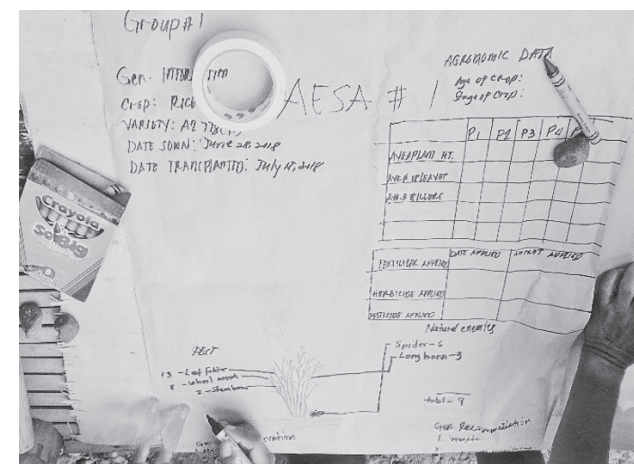 Group #1
Gen. INFORMATION
Crop: RICE
VARIETY:
DATE SOWN: June 28, 2018
DATE TRANSPLANTED: July 18, 2018
AESA # 1
AGRONOMIC DATA
Age of crop:
Stage of crop:
P1 P2 P3 P4
AVE. PLANT HT.
AVE. # OF LEAVES
AVE. # TILLERS
DATE APPLIED AMOUNT APPLIED
FERTILIZER APPLIED
HERBICIDE APPLIED
PESTICIDE APPLIED
Crayola
So Big
PEST
13 - Leaf folder
8 - Whorl maggot
2 - Stemborer
Natural enemies
Spider - 6
Longhorn - 3
total - 9
Gen. Recommendation